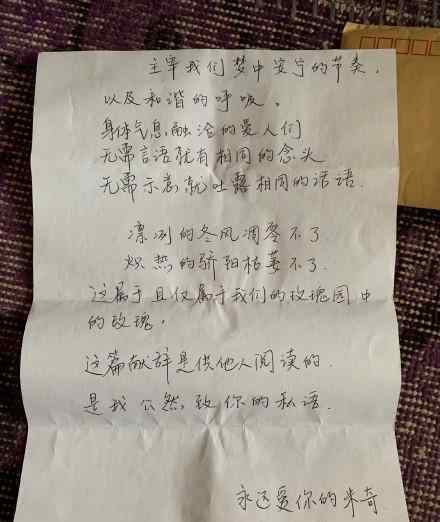 主宰我们梦中安宁的节奏，
以及和谐的呼吸。
身体气息融洽的爱人们
无需言语就有相同的念头
无需示意就吐露相同的话语.
凛冽的冬风凋零不了
炽热的骄阳枯萎不了.
这属于且仅属于我们的玫瑰园中
的玫瑰。
这篇献辞是供他人阅读的.
是我公然致你的私语.
永远爱你的米奇